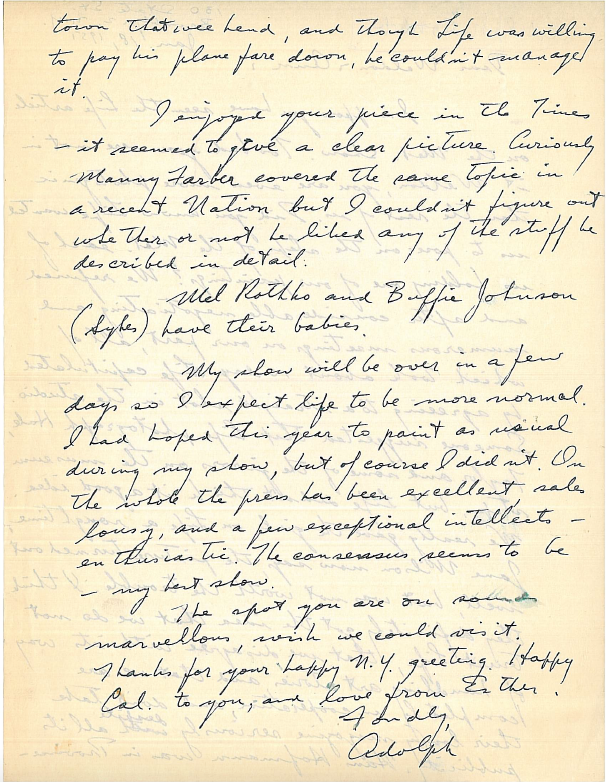 town that wee hend, and though Life was willing
to pay his plane fare down, he couldn't manage
it.
I enjoyed your piece in the Times
- it seemed to give a clear picture. Curiously
Manny Farber covered the same topic in
a recent Nation but I couldn't figure out
whether or not he liked any of the stuff he
described in detail.
Mel Rothko and Buffie Johnson
(Sykes) have their babies.
My show will be over in a few
days so I expect life to be more normal.
I had hoped this year to paint as usual
during my show, but of course I didn't. On
the whole the press has been excellent, sales
lousy, and a few exceptional intellects -
enthusiastic. The consensus seems to be
- my best show.
The spot you are on sounds
marvellous, wish we could visit.
Thanks for your happy N.Y. greeting. Happy
Cal. to you, and love from Esther.
Fondly,
Adolph